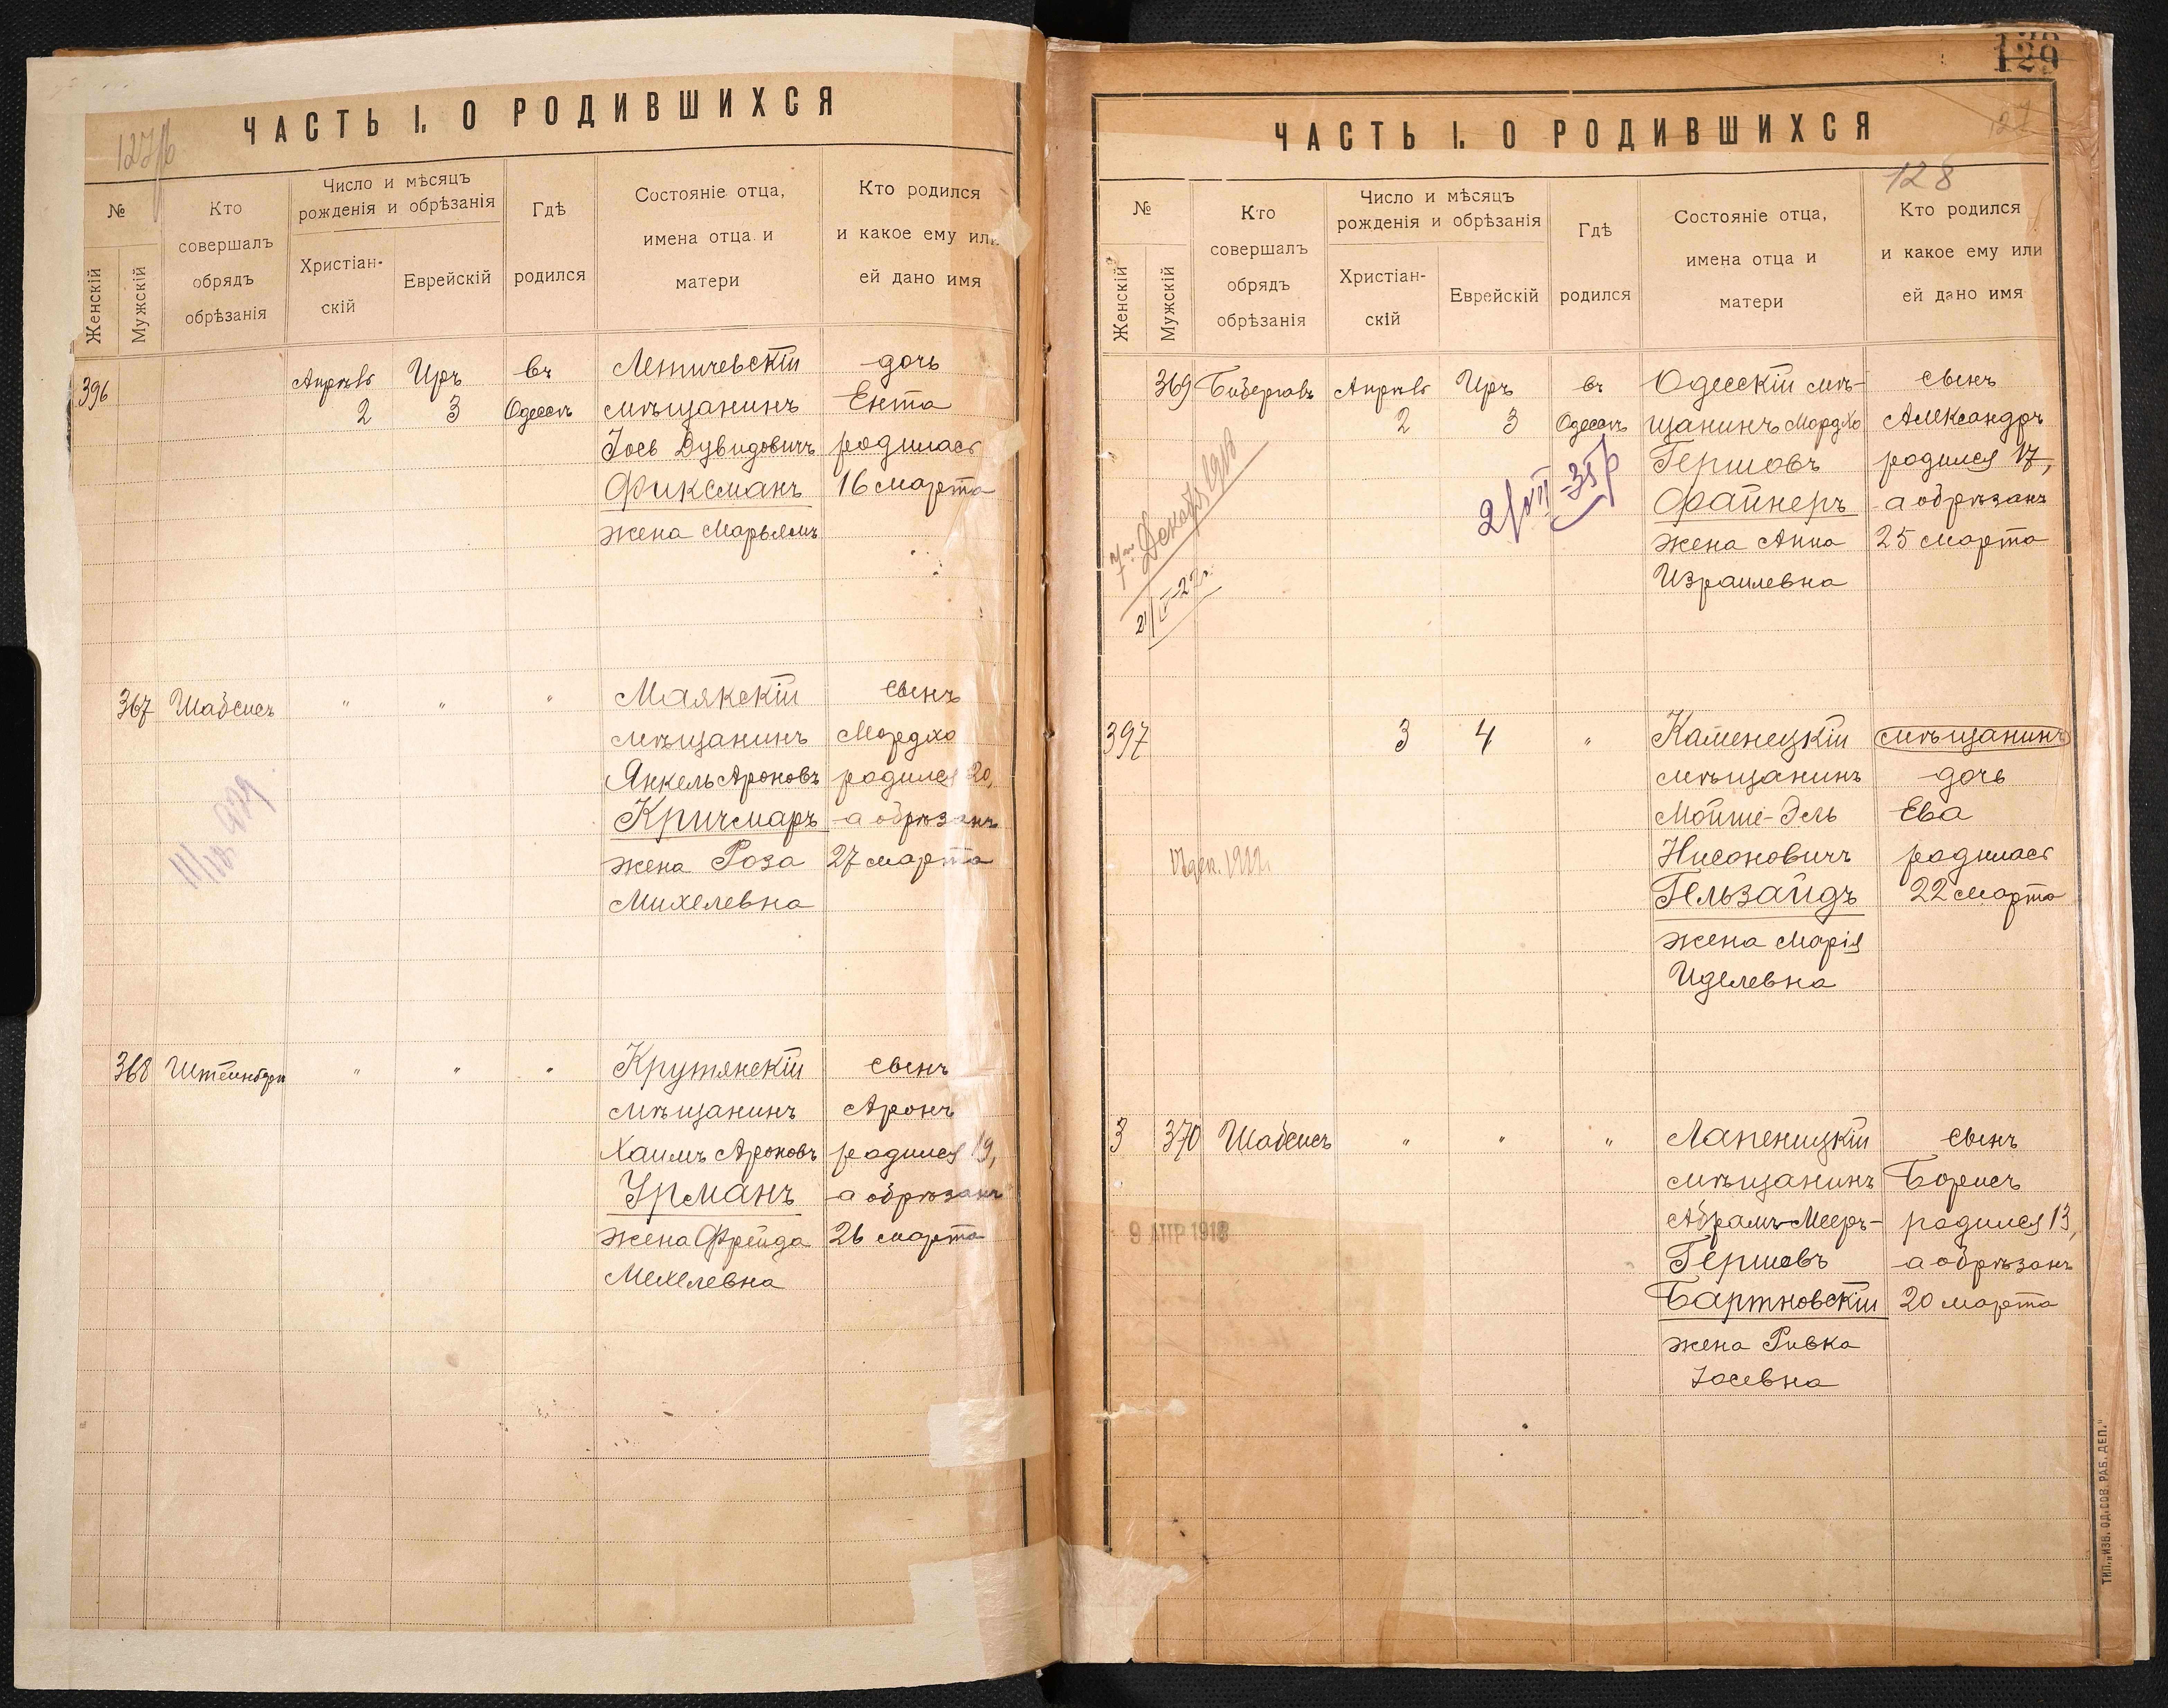 127/б
ЧАСТЬ I. О РОДИВШИХСЯ
№
Женскій
Мужскій
Кто
совершалъ
обрядъ
обрѣзанія
Число и мѣсяцъ
рожденія и обрѣзанія
Христіан-
скій
Еврейскій
Гдѣ
родился
Состояніе отца,
имена отца и
матери
Кто родился
и какое ему или
ей дано имя
396 Апрѣль Иръ въ Летичевскій дочь
2 3 Одессѣ мѣщанинъ Ента
Іось Дувидовичъ родилась
Фиксманъ 16 марта
жена Марьямъ
367 Шабсисъ " " " Маякскій сынъ
мѣщанинъ Мордко
Янкель Ароновъ родился 20,
Кричмаръ а обрѣзанъ
жена Роза 27 марта
Михелевна
368 " " " Крутянскій сынъ
мѣщанинъ Аронъ
Хаимъ Ароновъ родился 19,
Урманъ а обрѣзанъ
жена Фрейда 26 марта
Мехелевна
129
127
ЧАСТЬ I. О РОДИВШИХСЯ
128
№
Женскій
Мужскій
Кто
совершалъ
обрядъ
обрѣзанія
Число и мѣсяцъ
рожденія и обрѣзанія
Христіан-
скій
Еврейскій
Гдѣ
родился
Состояніе отца,
имена отца и
матери
Кто родился
и какое ему или
ей дано имя
369 Апрѣль Иръ въ Одесскій мѣ- сынъ
2 3 Одессѣ щанинъ Мордко Александръ
Гершовъ родился 17,
Файнеръ а обрѣзанъ
жена Анна 25 марта
Израилевна
397 3 4 " Каменецкій мѣщанинъ
мѣщанинъ дочь
Мойше-Эль Ева
Нисоновичъ родилась
Гельзайдъ 22 марта
жена Марія
Иделевна
3 370 Шабсисъ " " " сынъ
мѣщанинъ Борисъ
Абрамъ-Мееръ- родился 13,
9 АПР 1918
Гершовъ а обрѣзанъ
Бартновскій 20 марта
жена Ривка
Іосевна
ТИП. „ИЗВ. ОД. СОВ. РАБ. ДЕП."